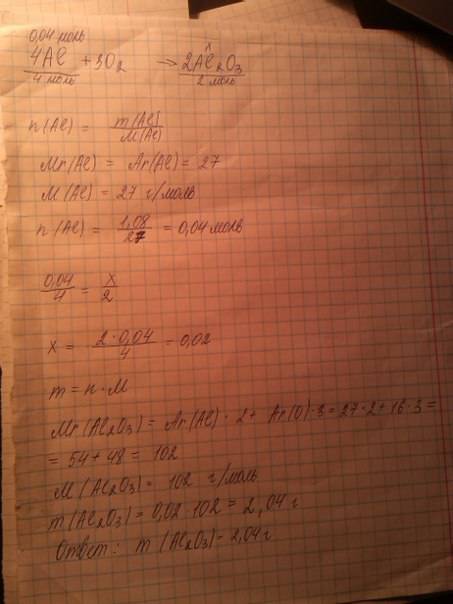 0,04 моль x
4Al + 3O2 → 2Al2O3
4 моль 2 моль
n(Al) = m(Al) / M(Al)
Mr(Al) = Ar(Al) = 27
M(Al) = 27 г/моль
n(Al) = 1,08 / 27 = 0,04 моль
0,04 / 4 = x / 2
x = 2·0,04 / 4 = 0,02
m = n·M
Mr(Al2O3) = Ar(Al)·2 + Ar(O)·3 = 27·2 + 16·3 =
= 54 + 48 = 102
M(Al2O3) = 102 г/моль
m(Al2O3) = 0,02·102 = 2,04 г
Ответ: m(Al2O3) = 2,04 г